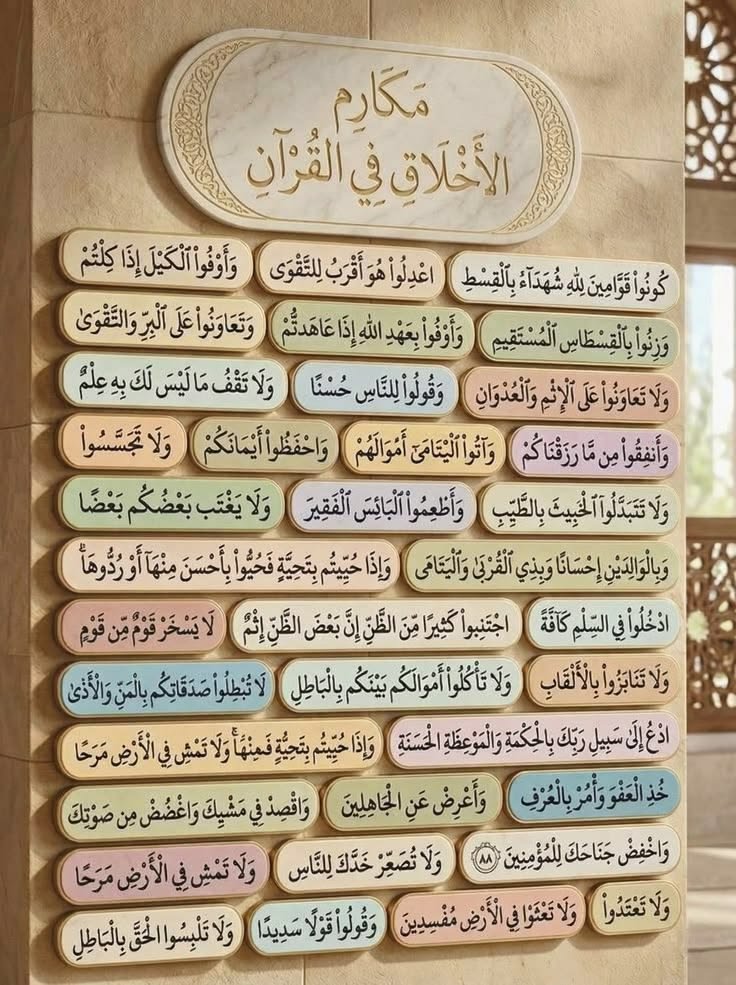 مَكَارِمِ
الأَخْلَاقِ فِي القُرْآنِ
كُونُواْ قَوَّامِينَ لِلهِ شُهَدَآءَ بِٱلْقِسْطِ
اعْدِلُواْ هُوَ أَقْرَبُ لِلتَّقْوَى
وَأَوْفُواْ ٱلْكَيْلَ إِذَا كِلْتُمْ
وَزِنُواْ بِٱلْقِسْطَاسِ ٱلْمُسْتَقِيمِ
وَأَوْفُواْ بِعَهْدِ اللهِ إِذَا عَاهَدتُّمْ
وَتَعَاوَنُواْ عَلَى ٱلْبِرِّ وَالتَّقْوَىٰ
وَلَا تَعَاوَنُواْ عَلَى ٱلْإِثْمِ وَٱلْعُدْوَانِ
وَقُولُواْ لِلنَّاسِ حُسْنًا
وَلَا تَقْفُ مَا لَيْسَ لَكَ بِهِ عِلْمٌ
وَأَنفِقُواْ مِن مَّا رَزَقْنَاكُمْ
وَآتُواْ الْيَتَامَىٰٓ أَمْوَالَهُمْ
وَاحْفَظُواْ أَيْمَانَكُمْ
وَلَا تَجَسَّسُواْ
وَلَا تَتَبَدَّلُواْ ٱلْخَبِيثَ بِالطَّيِّبِ
وَأَطْعِمُواْ ٱلْبَائِسَ ٱلْفَقِيرَ
وَلَا يَغْتَب بَعْضُكُم بَعْضًا
وَبِالْوَالِدَيْنِ إِحْسَانًا وَبِذِي ٱلْقُرْبَىٰ وَالْيَتَامَى
وَإِذَا حُيِّيتُم بِتَحِيَّةٍ فَحُيُّواْ بِأَحْسَنَ مِنْهَآ أَوْ رُدُّوهَا
ادْخُلُواْ فِي السِّلْمِ كَآفَّةً
اجْتَنِبُواْ كَثِيرًا مِّنَ الظَّنِّ إِنَّ بَعْضَ الظَّنِّ إِثْمٌ
لَا يَسْخَرْ قَوْمٌ مِّن قَوْمٍ
وَلَا تَنَابَزُواْ بِالْأَلْقَابِ
وَلَا تَأْكُلُواْ أَمْوَالَكُم بَيْنَكُم بِالْبَاطِلِ
لَا تُبْطِلُواْ صَدَقَاتِكُم بِالْمَنِّ وَالْأَذَىٰ
ادْعُ إِلَىٰ سَبِيلِ رَبِّكَ بِالْحِكْمَةِ وَالْمَوْعِظَةِ الْحَسَنَةِ
وَإِذَا حُيِّيتُم بِتَحِيَّةٍ فَمِنْهَا وَلَا تَمْشِ فِي الْأَرْضِ مَرَحًا
خُذِ الْعَفْوَ وَأْمُرْ بِالْعُرْفِ
وَأَعْرِضْ عَنِ الْجَاهِلِينَ
وَاقْصِدْ فِي مَشْيِكَ وَاغْضُضْ مِن صَوْتِكَ
وَاخْفِضْ جَنَاحَكَ لِلْمُؤْمِنِينَ ٨٨
وَلَا تُصَعِّرْ خَدَّكَ لِلنَّاسِ
وَلَا تَمْشِ فِي الْأَرْضِ مَرَحًا
وَلَا تَعْتَدُواْ
وَلَا تَعْثَوْا فِي الْأَرْضِ مُفْسِدِينَ
وَقُولُواْ قَوْلًا سَدِيدًا
وَلَا تَلْبِسُوا الْحَقَّ بِالْبَاطِلِ